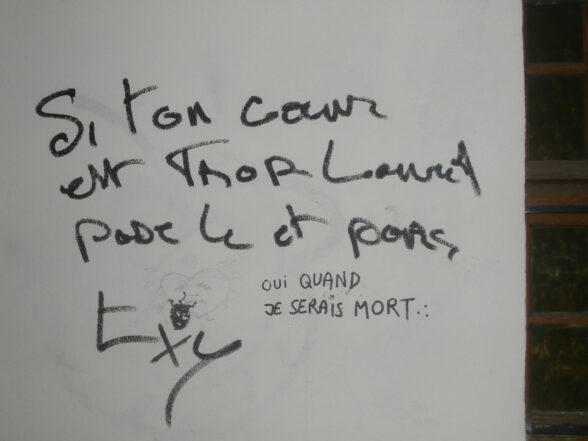 Si ton cœur
est Trop Lourd
pose le et pars
OUI QUAND
JE SERAIS MORT.: